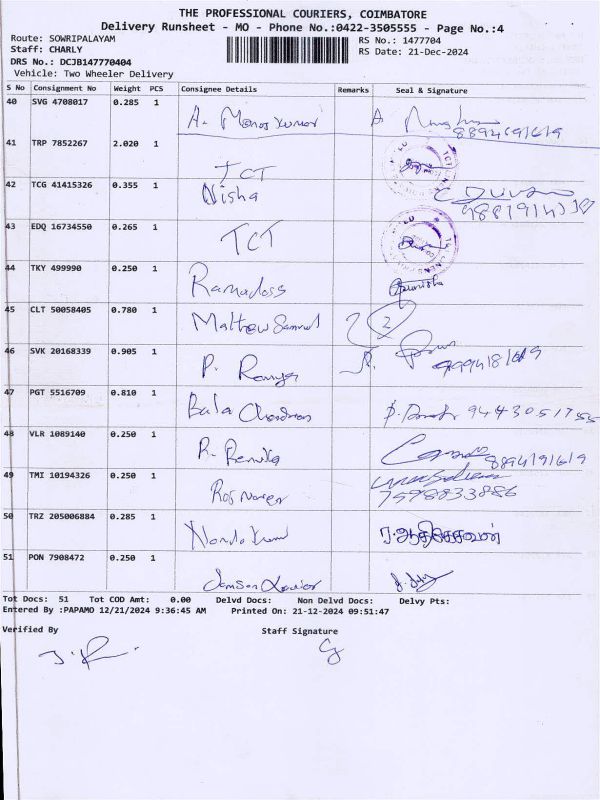 THE PROFESSIONAL COURIERS, COIMBATORE
Delivery Runsheet - MO - Phone No.:0422-3505555 - Page No.:4
Route: SOWRIPALAYAM
RS No.: 1477704
Staff: CHARLY
RS Date: 21-Dec-2024
DRS No.: DCJB147770404
Vehicle: Two Wheeler Delivery
S No Consignment No Weight PCS Consignee Details Remarks Seal & Signature
40 SVG 4708017 0.285 1 A. Manoj Kumar
8894691619
41 TRP 7852267 2.020 1 TCT
42 TCG 41415326 0.355 1 Nisha
43 EDQ 16734550 0.265 1 TCT
44 TKY 499990 0.250 1 Ramadoss
45 CLT 50058405 0.780 1 Mathew Samuel 2
46 SVK 20168339 0.905 1 P. Ramya
47 PGT 5516709 0.810 1 Bala Chandran
48 VLR 1089140 0.250 1 R. Renuka 8894191619
49 TMI 10194326 0.250 1 7598833886
50 TRZ 205006884 0.285 1 Nanda Kumar
51 PON 7908472 0.250 1 Jamson Xavier
Tot Docs: 51 Tot COD Amt: 0.00 Delvd Docs: Non Delvd Docs: Delvy Pts:
Entered By :PAPAMO 12/21/2024 9:36:45 AM Printed On: 21-12-2024 09:51:47
Verified By Staff Signature